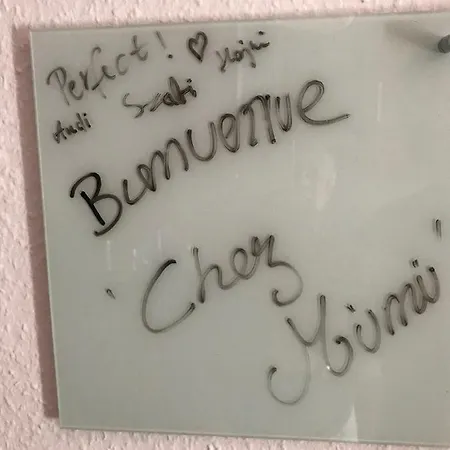 Perfect! ♡
Andi Szabi
Bienvenue
'Chez
Mimi'